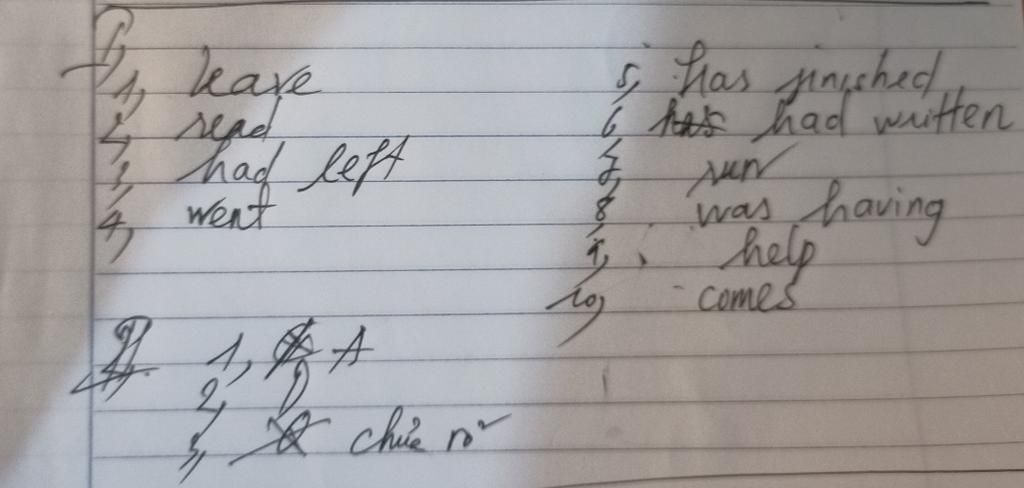 I,
1, leave
2, read
3, had left
4, went
5, has finished
6, had written
7, run
8, was having
9, help
10, comes
II, 1, A
2, D
3, chưa rõ